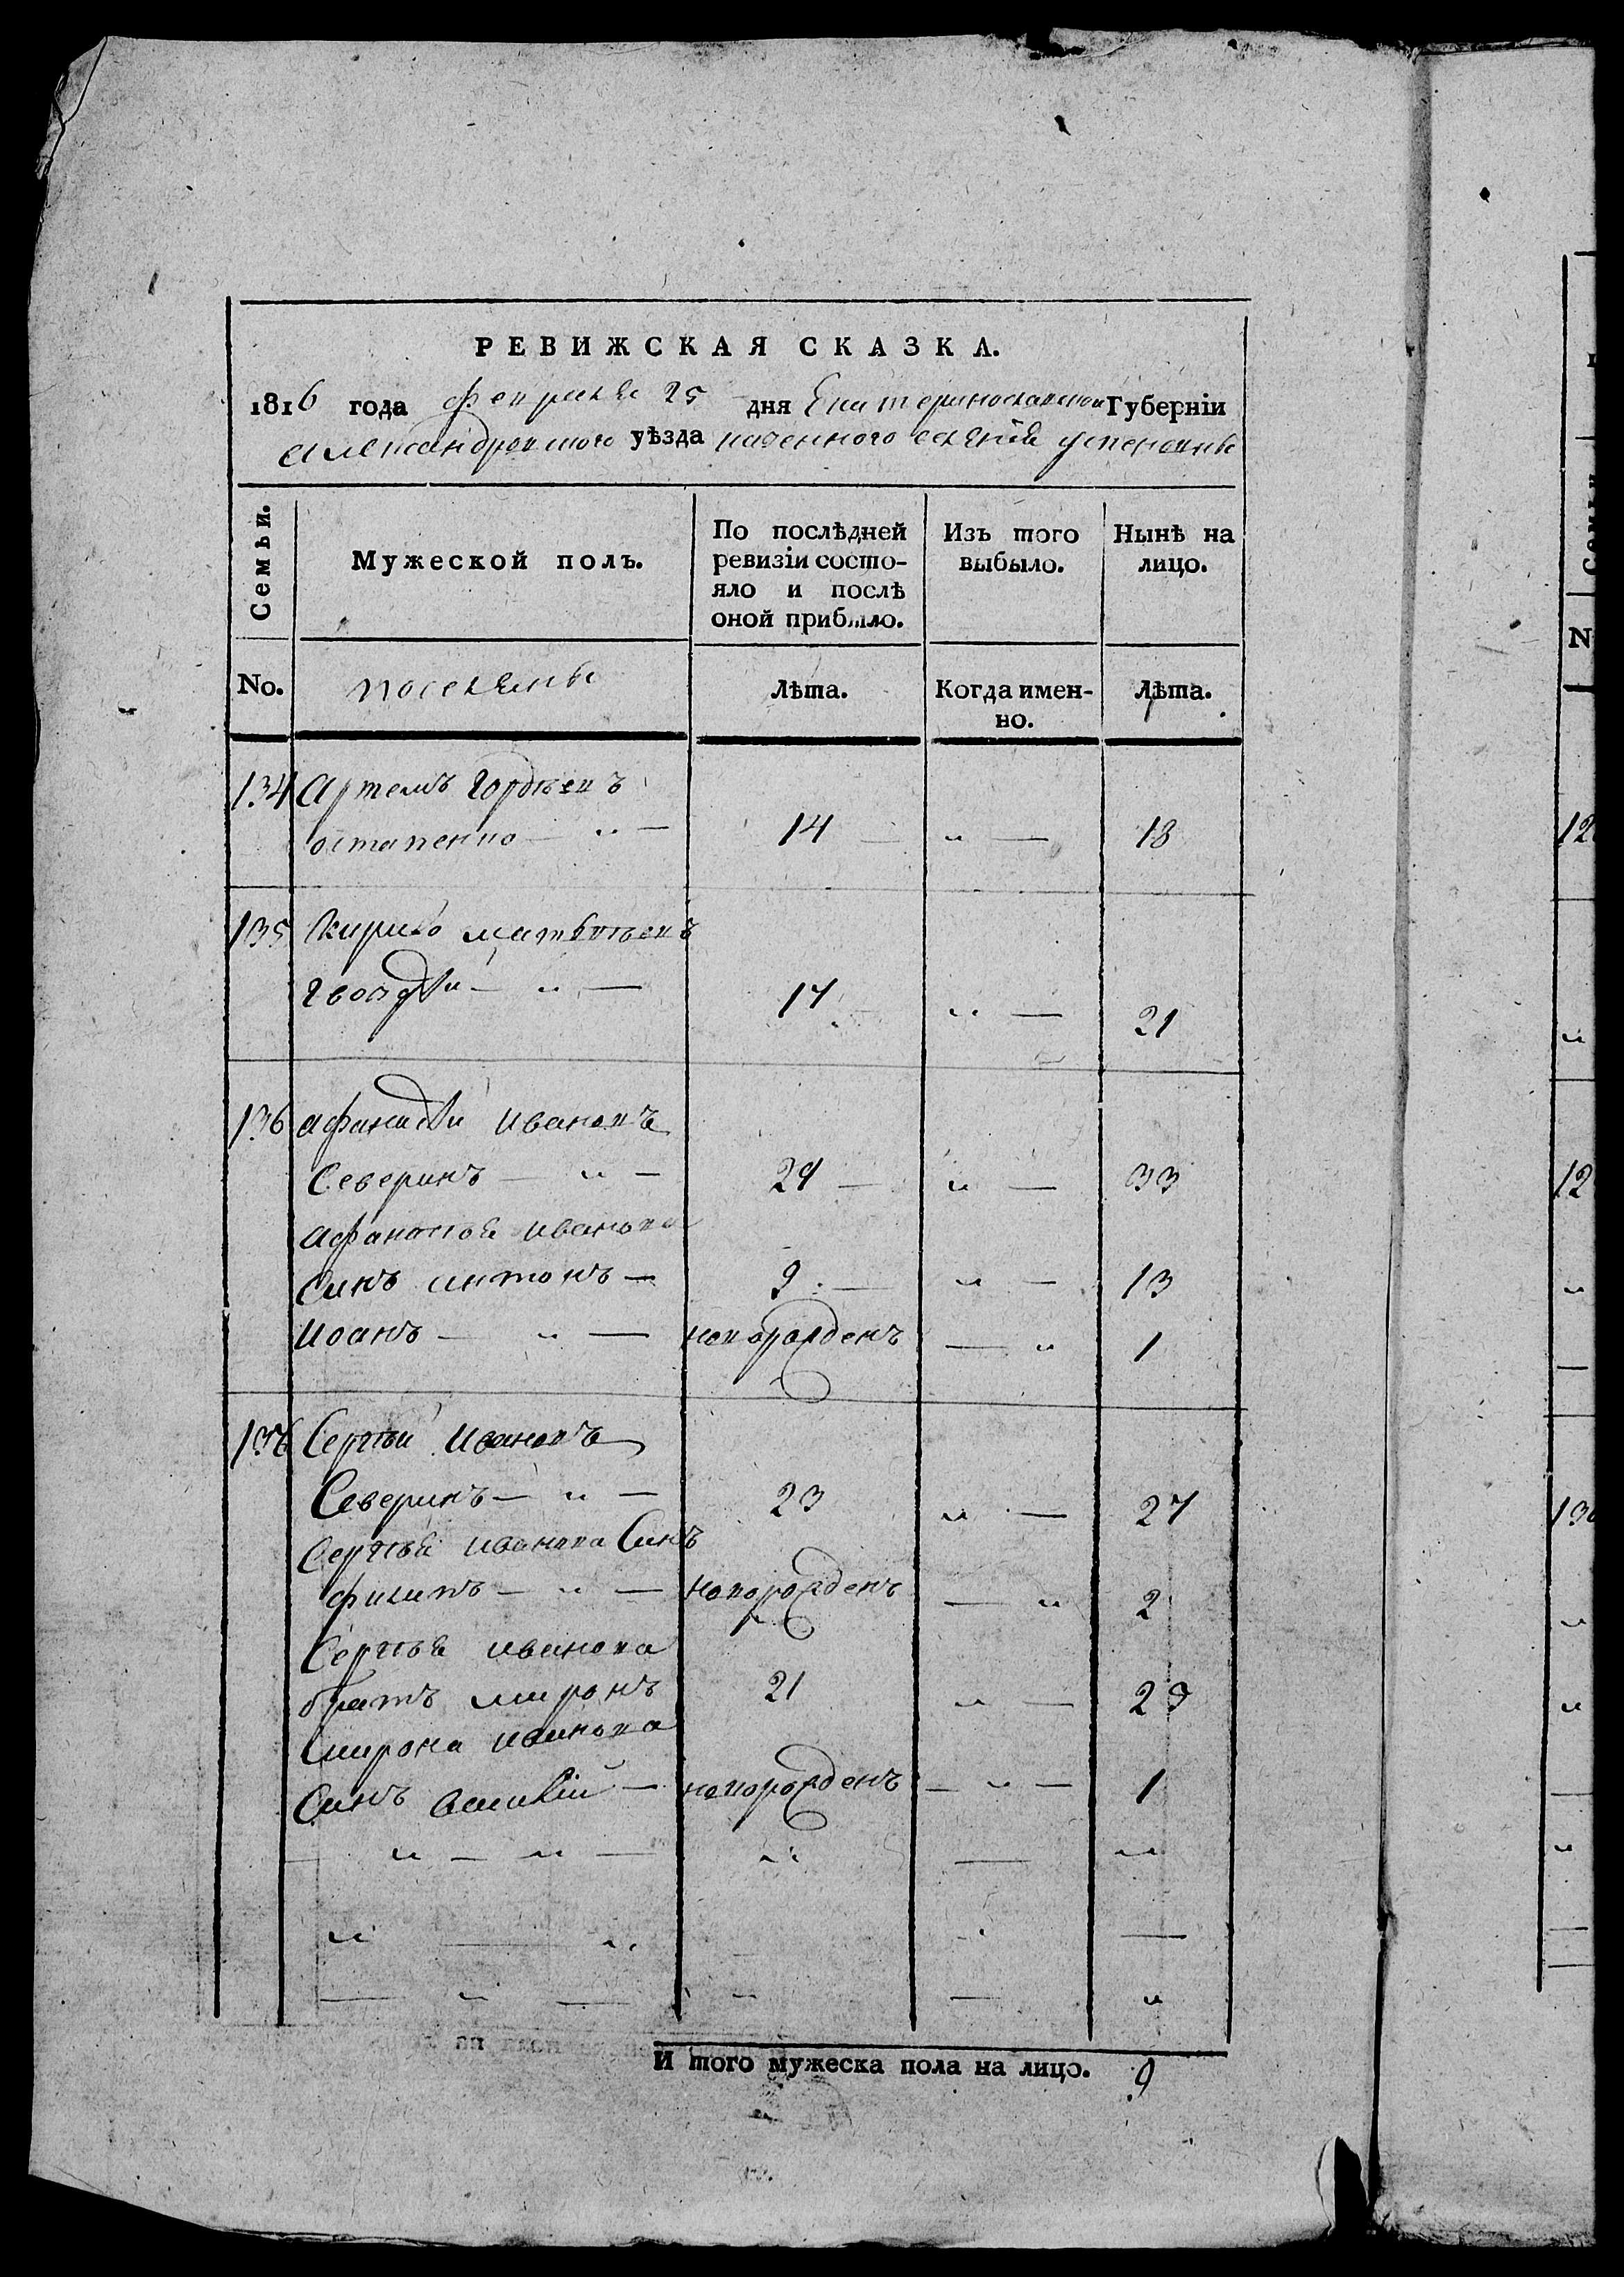 РЕВИЖСКАЯ СКАЗКА.
1816 года февраля 25 дня Екатеринославской Губерніи
Александровского уѣзда казенного селенія успеновки
Семьи.
Мужеской полъ.
По послѣдней ревизіи состо-
яло и послѣ
оной прибыло.
Изъ того
выбыло.
Нынѣ на
лицо.
No.
поселяны
Лѣта.
Когда имен-
но.
Лѣта.
134 Артемъ Гордѣевъ
остапенко — " — 14 — " — 18
135 Кирило матвѣевъ
Гвоздѣй — " — 17 " — 21
136 афанасѣй Ивановъ
Северинъ — " — 29 — " — 33
афанасія иванова
Синъ антонъ — 9 — " — 13
Иоанъ — " — неворожденъ — " 1
137 Сергѣй Ивановъ
Северинъ — " — 23 " — 27
Сергѣя иванова Синъ
филипъ — " — неворожденъ — " 2
Сергѣя иванова
братъ миронъ 21 " — 25
мирона иванова
Синъ василій — неворожденъ — " — 1
И того мужеска пола на лицо. 9
N
12
12
13